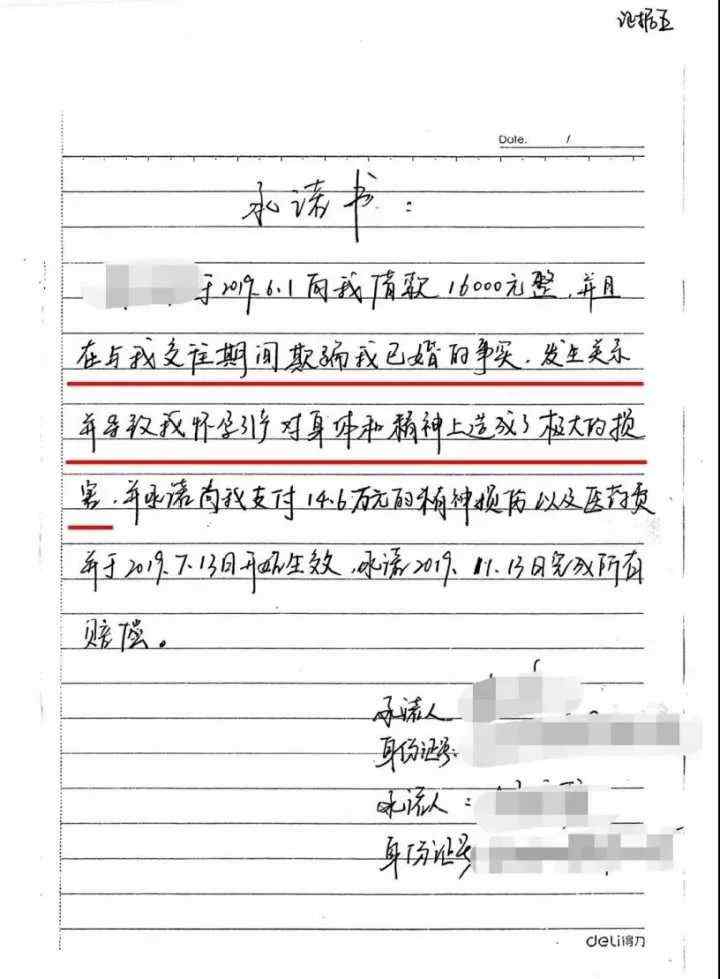 证据五
Date. /
承诺书：
于2019.6.1向我借款16000元整，并且
在与我交往期间欺骗我已婚的事实，发生关系
并导致我怀孕引产对身体和精神上造成了极大的损
害，并承诺向我支付14.6万元的精神损伤以及医药费
并于2019.7.13日开始生效，承诺2019.11.13日完成所有
赔偿。
承诺人
身份证号：
承诺人：
身份证号
deli得力